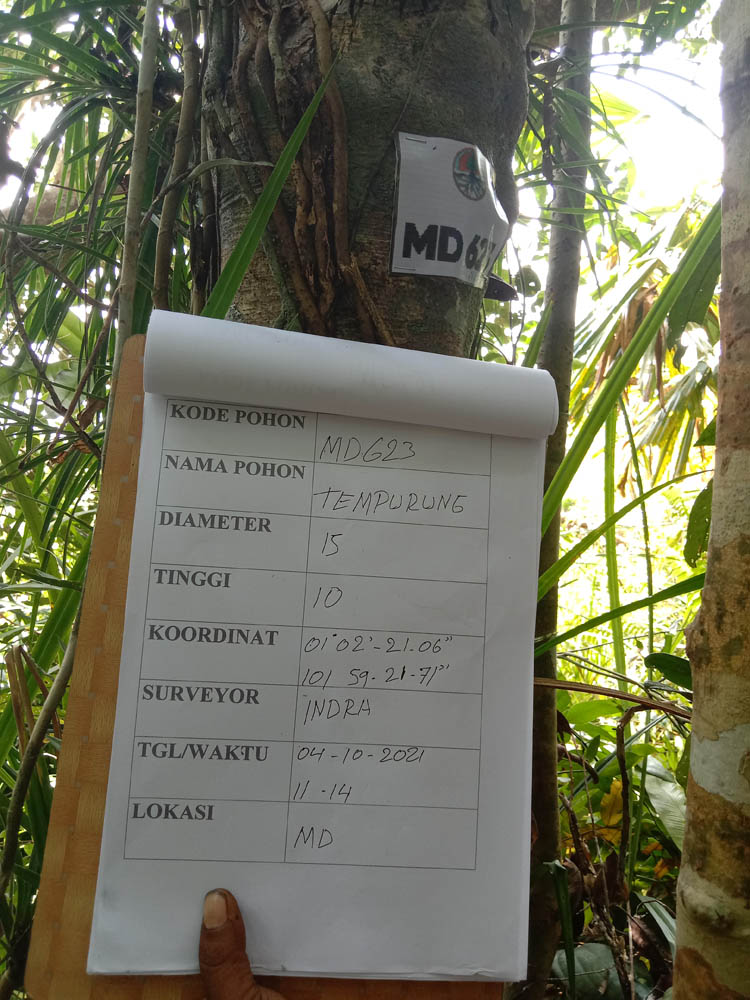 MD 62
KODE POHON MD623
NAMA POHON TEMPURUNG
DIAMETER 15
TINGGI 10
KOORDINAT 01°02'-21.06"
101 59-21-71"
SURVEYOR INDRA
TGL/WAKTU 04-10-2021
11-14
LOKASI MD